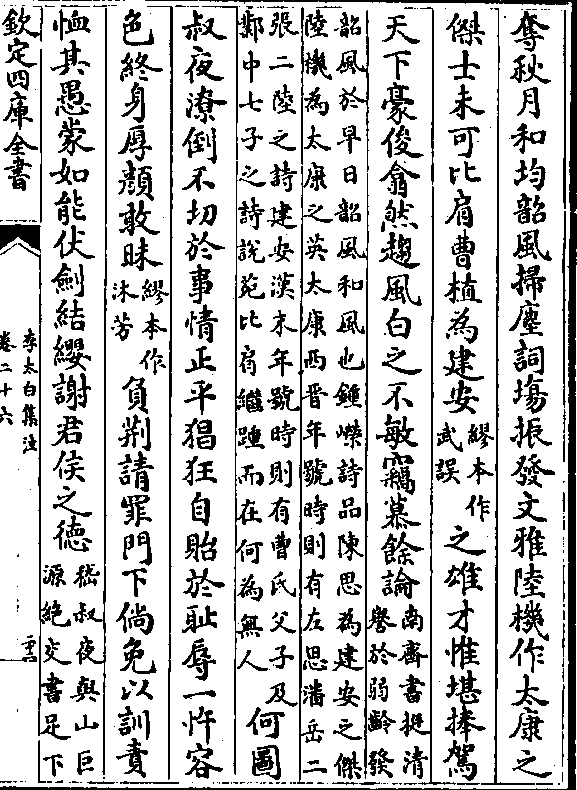 奪秋月和均韶風掃塵詞塲振發文雅陸機作太康之
傑士未可比肩曹植為建安繆本作武誤之雄才惟堪捧駕
天下豪俊翕然趨風白之不敏竊慕餘論南齊書挺清
譽於弱齡發
韶風於早日韶風和風也鍾嶸詩品陳思為建安之傑
陸機為太康之英太康西晉年號時則有左思潘岳二
張二陸之詩建安漢末年號時則有曹氏父子及
鄴中七子之詩說苑比肩繼踵而在何為無人何圖
叔夜潦倒不切於事情正平猖狂自貽於耻辱一忤容
色終身厚顔敢昧繆本作沐芳負荆請罪門下倘免以訓責
恤其愚蒙如能伏劍結纓謝君侯之德嵇叔夜與山巨
源絶交書足下
欽定四庫全書
李太白集注
卷二十六